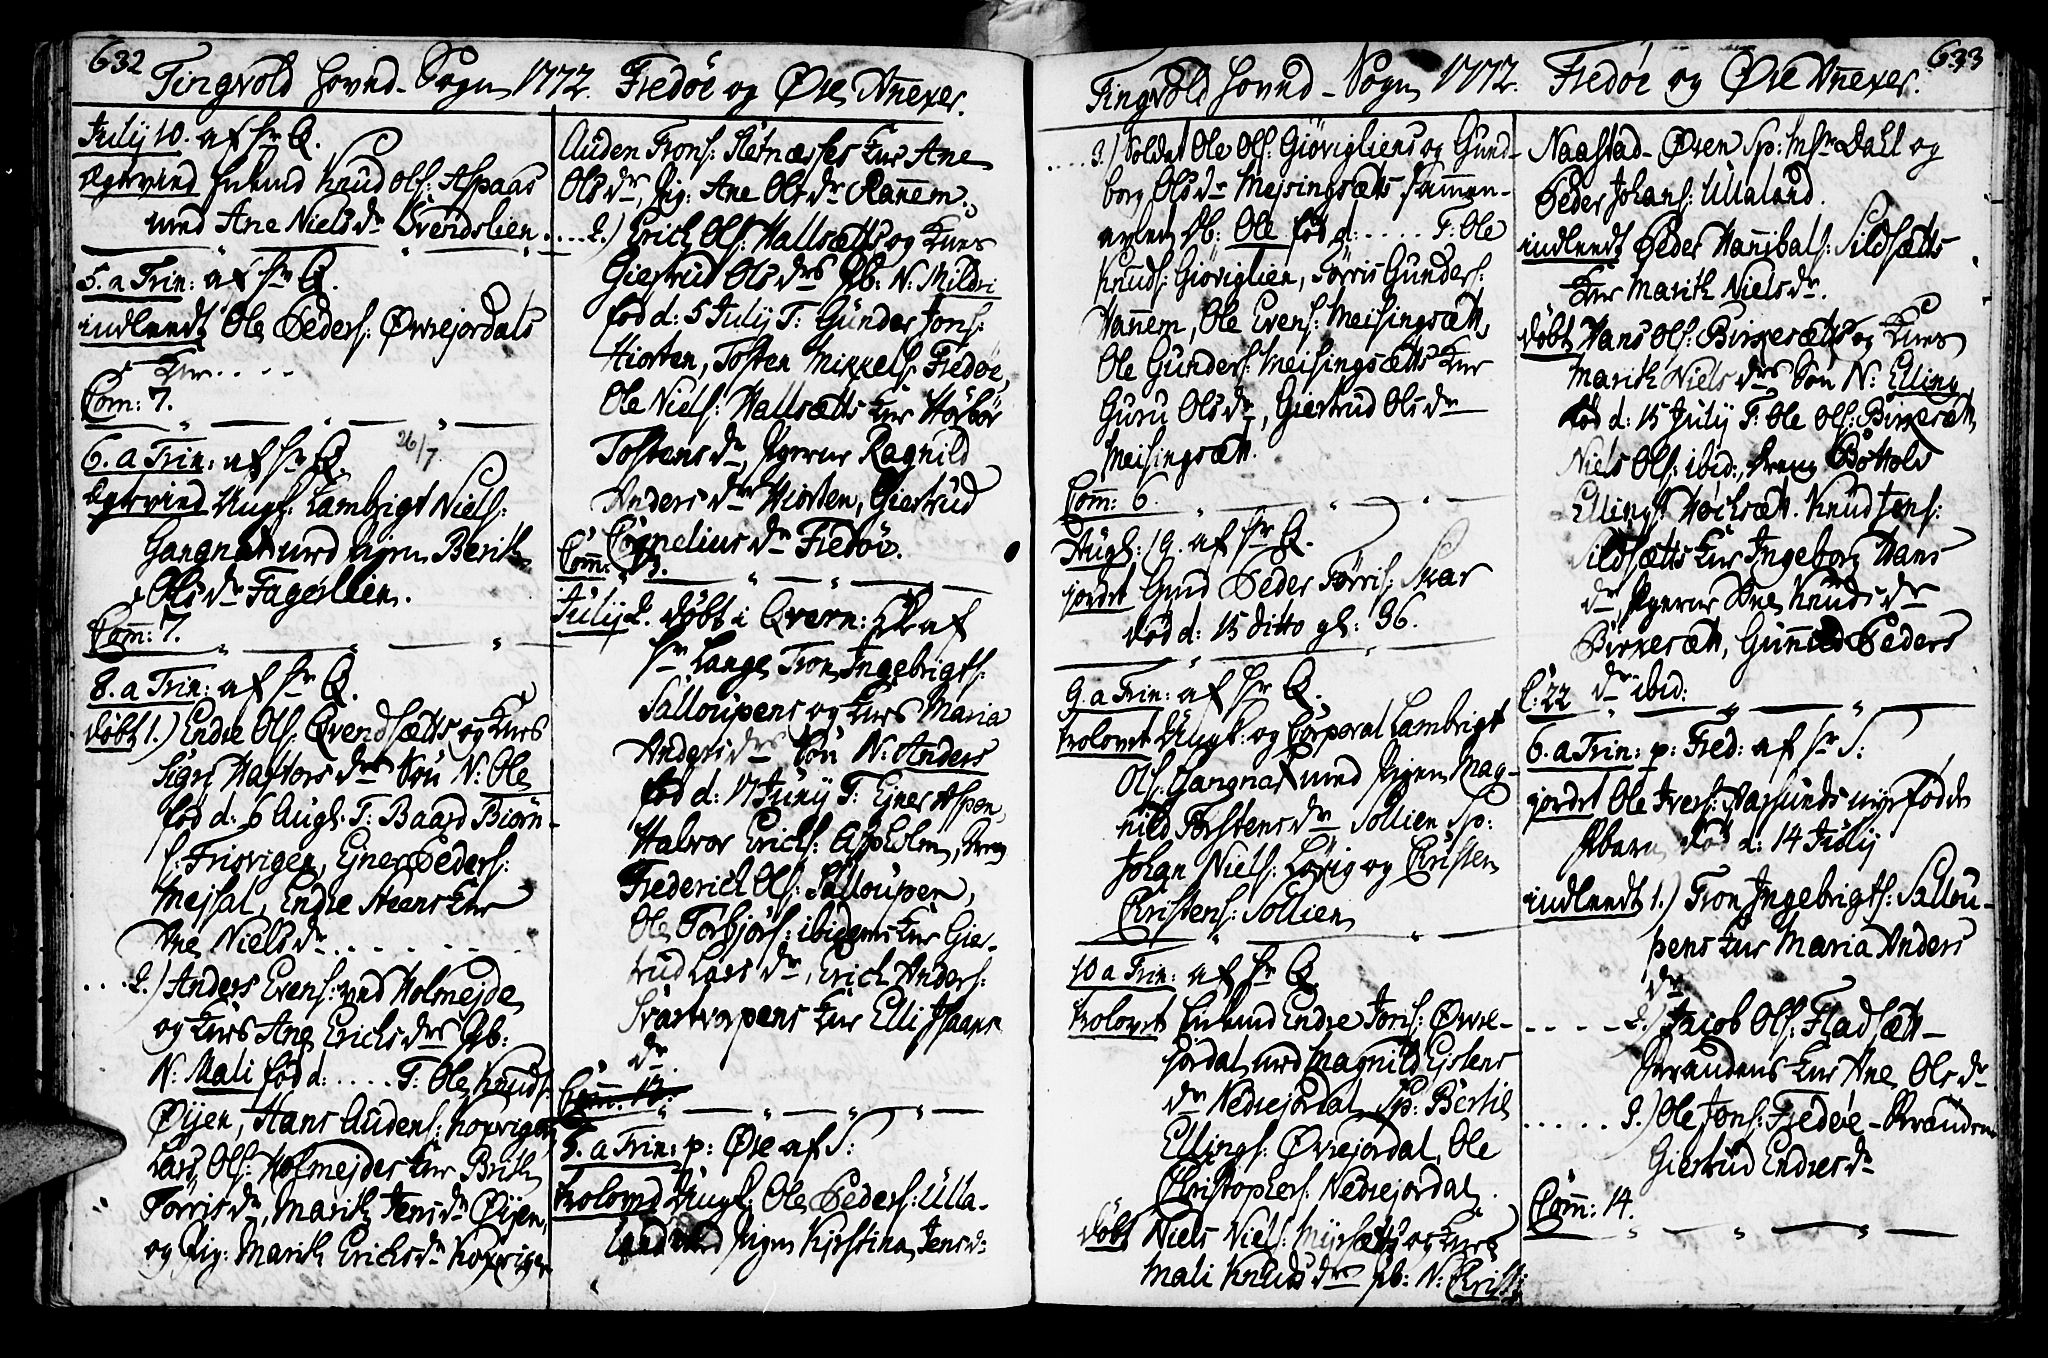 632
Tingvold Hovud-Sogn 1772. Fredøe og Øre Annexer.
July 10. af Hr Q.
Egtevied Enkemd Knud Ols: Aspaas
med Ane Niels dr Brendslien.
5. a Trin: af Hr Q.
indleedt Ole Peders: Øvrejordals
Kne....
Com: 7.
6. a Trin: af Hr Q. 26/7
Egtevied Ungk: Lambrigt Niels:
Gangnat med Pigen Berith
Ols dr Fagerlien.
Com: 7.
8. a Trin: af Hr Q.
døbt 1.) Endre Ols: Qvendsætts og Knes
Sigri Havors drs Søn N: Ole
fød d: 6 Aug: F: Baard Biørn-
s: Friovigen, Ejner Peders:
Mejsal, Endre Steens Kne
Ane Niels dr......
...2.) Anders Evens: ved Holmejde
og Knes Ane Erichs drs Pb:
N: Mali fød d:.... F: Ole Knuds:
Øijen, Hans Audens: Korvigen
Lars Ols: Holmejdes Kne Brith
Tørris dr, Marith Jens dr Øijen,
og Pig: Marith Erichs dr Korvigen
Auden Trons: Sletnæsses Kne Ane
Ols dr, Pig: Ane Ols dr Rannem.
...2.) Erich Ols: Hallsætts og Knes
Giertrud Ols drs Pb: N: Mildri
fød d: 5 July F: Gunder Jons:
Hiorten, Tosten Mikkels: Fredøe,
Ole Niels: Hallsætts Kne Hørbør
Tostens dr, Pigerne Ragnild
Anders dr Hiorten, Giertrud
Cornelius dr Fredøe.
Com: 13.
July 2. døbt i Qvern: K: af
Hr Lange Tron Ingebrigts:
Salloupens og Knes Maria
Anders drs Søn N: Anders
fød d: 17 Juny F: Ejner Aspøen,
Halvor Erichs: Aspholm, Dreng
Frederich Ols: Salloupen,
Ole Torbjørs: ibidems Kne Gier-
trud Lars dr, Erich Anders:
Svartvopens Kne Elli Isaachs
dr.
Com: 13.
5. a Trin: p: Øre af S:
trolovid Ungk: Ole Peders: Ulla-
land med Pigen Kjerstina Jens dr
633
Tingvold Hovud-Sogn 1772. Fredøe og Øre Annexer.
....3.) Soldat Ole Ols: Giøvigliens og Gund-
borg Ols dr Mejsingsæts sammen-
avlede Pb: Ole fød d:..... F: Ole
Knuds: Giøviglien, Tørris Gunders:
Hannem, Ole Evens: Meisingsætt,
Ole Gunders: Meisingsætts Kne
Guru Ols dr, Giertrud Ols dr
Meisingsætt.
Com: 6.
Aug: 19. af Hr Q.
jordet Gmd Peder Tørris: Skar
død d: 15 ditto gl: 36.
9. a Trin: af Hr Q.
trolovet Ungk: og Corporal Lambrigt
Ols: Gangnat med Pigen Mag-
nild Torstens dr Sollien Sp:
Johan Niels: Løvig og Christen
Christens: Sollien
10 a Trin: af Hr Q.
trolovet Enkemd Endre Jons: Øvre-
jordal med Magnild Ejstens
dr Nedrejordal Sp: Bertil
Ellings: Øvrejordal, Ole
Christophers: Nedrejordal.
døbt Niels Niels: Myrsætts og Knes
Mali Knuds drs Pb: N: Christi
Naastad-Øren Sp: Msr Dahl og
Peder Johans: Ullaland.
indleedt Peder Hannibals: Sildsætts
Kne Marith Niels dr.
døbt Hans Ols: Birkesætts og Knes
Marith Niels drs Søn N: Elling
fød d: 15 July F: Ole Ols: Birkesætt,
Niels Ols: ibid:, Dreng Bottolv
Ellings: Høcksæt. Knud Jons:
Sildsætts Kne Ingeborg Hans
dr, Pigerne Ane Knuds dr
Birkesætt, Gunnild Peders
dr ibid:
C: 22
6. a Trin: p: Fred: af Hr S:
jordet Ole Ivers: Aassunds nyefødde
Pbarn død d: 14 July
indleedt 1.) Tron Ingebrigts: Sallou-
pens Kne Maria Anders
dr
.....2.) Jacob Ols: Fladsætt-
Strandens Kne Ane Ols dr
.....3.) Ole Jons: Fredøe-Strandens
Giertrud Endres dr
Com: 14.